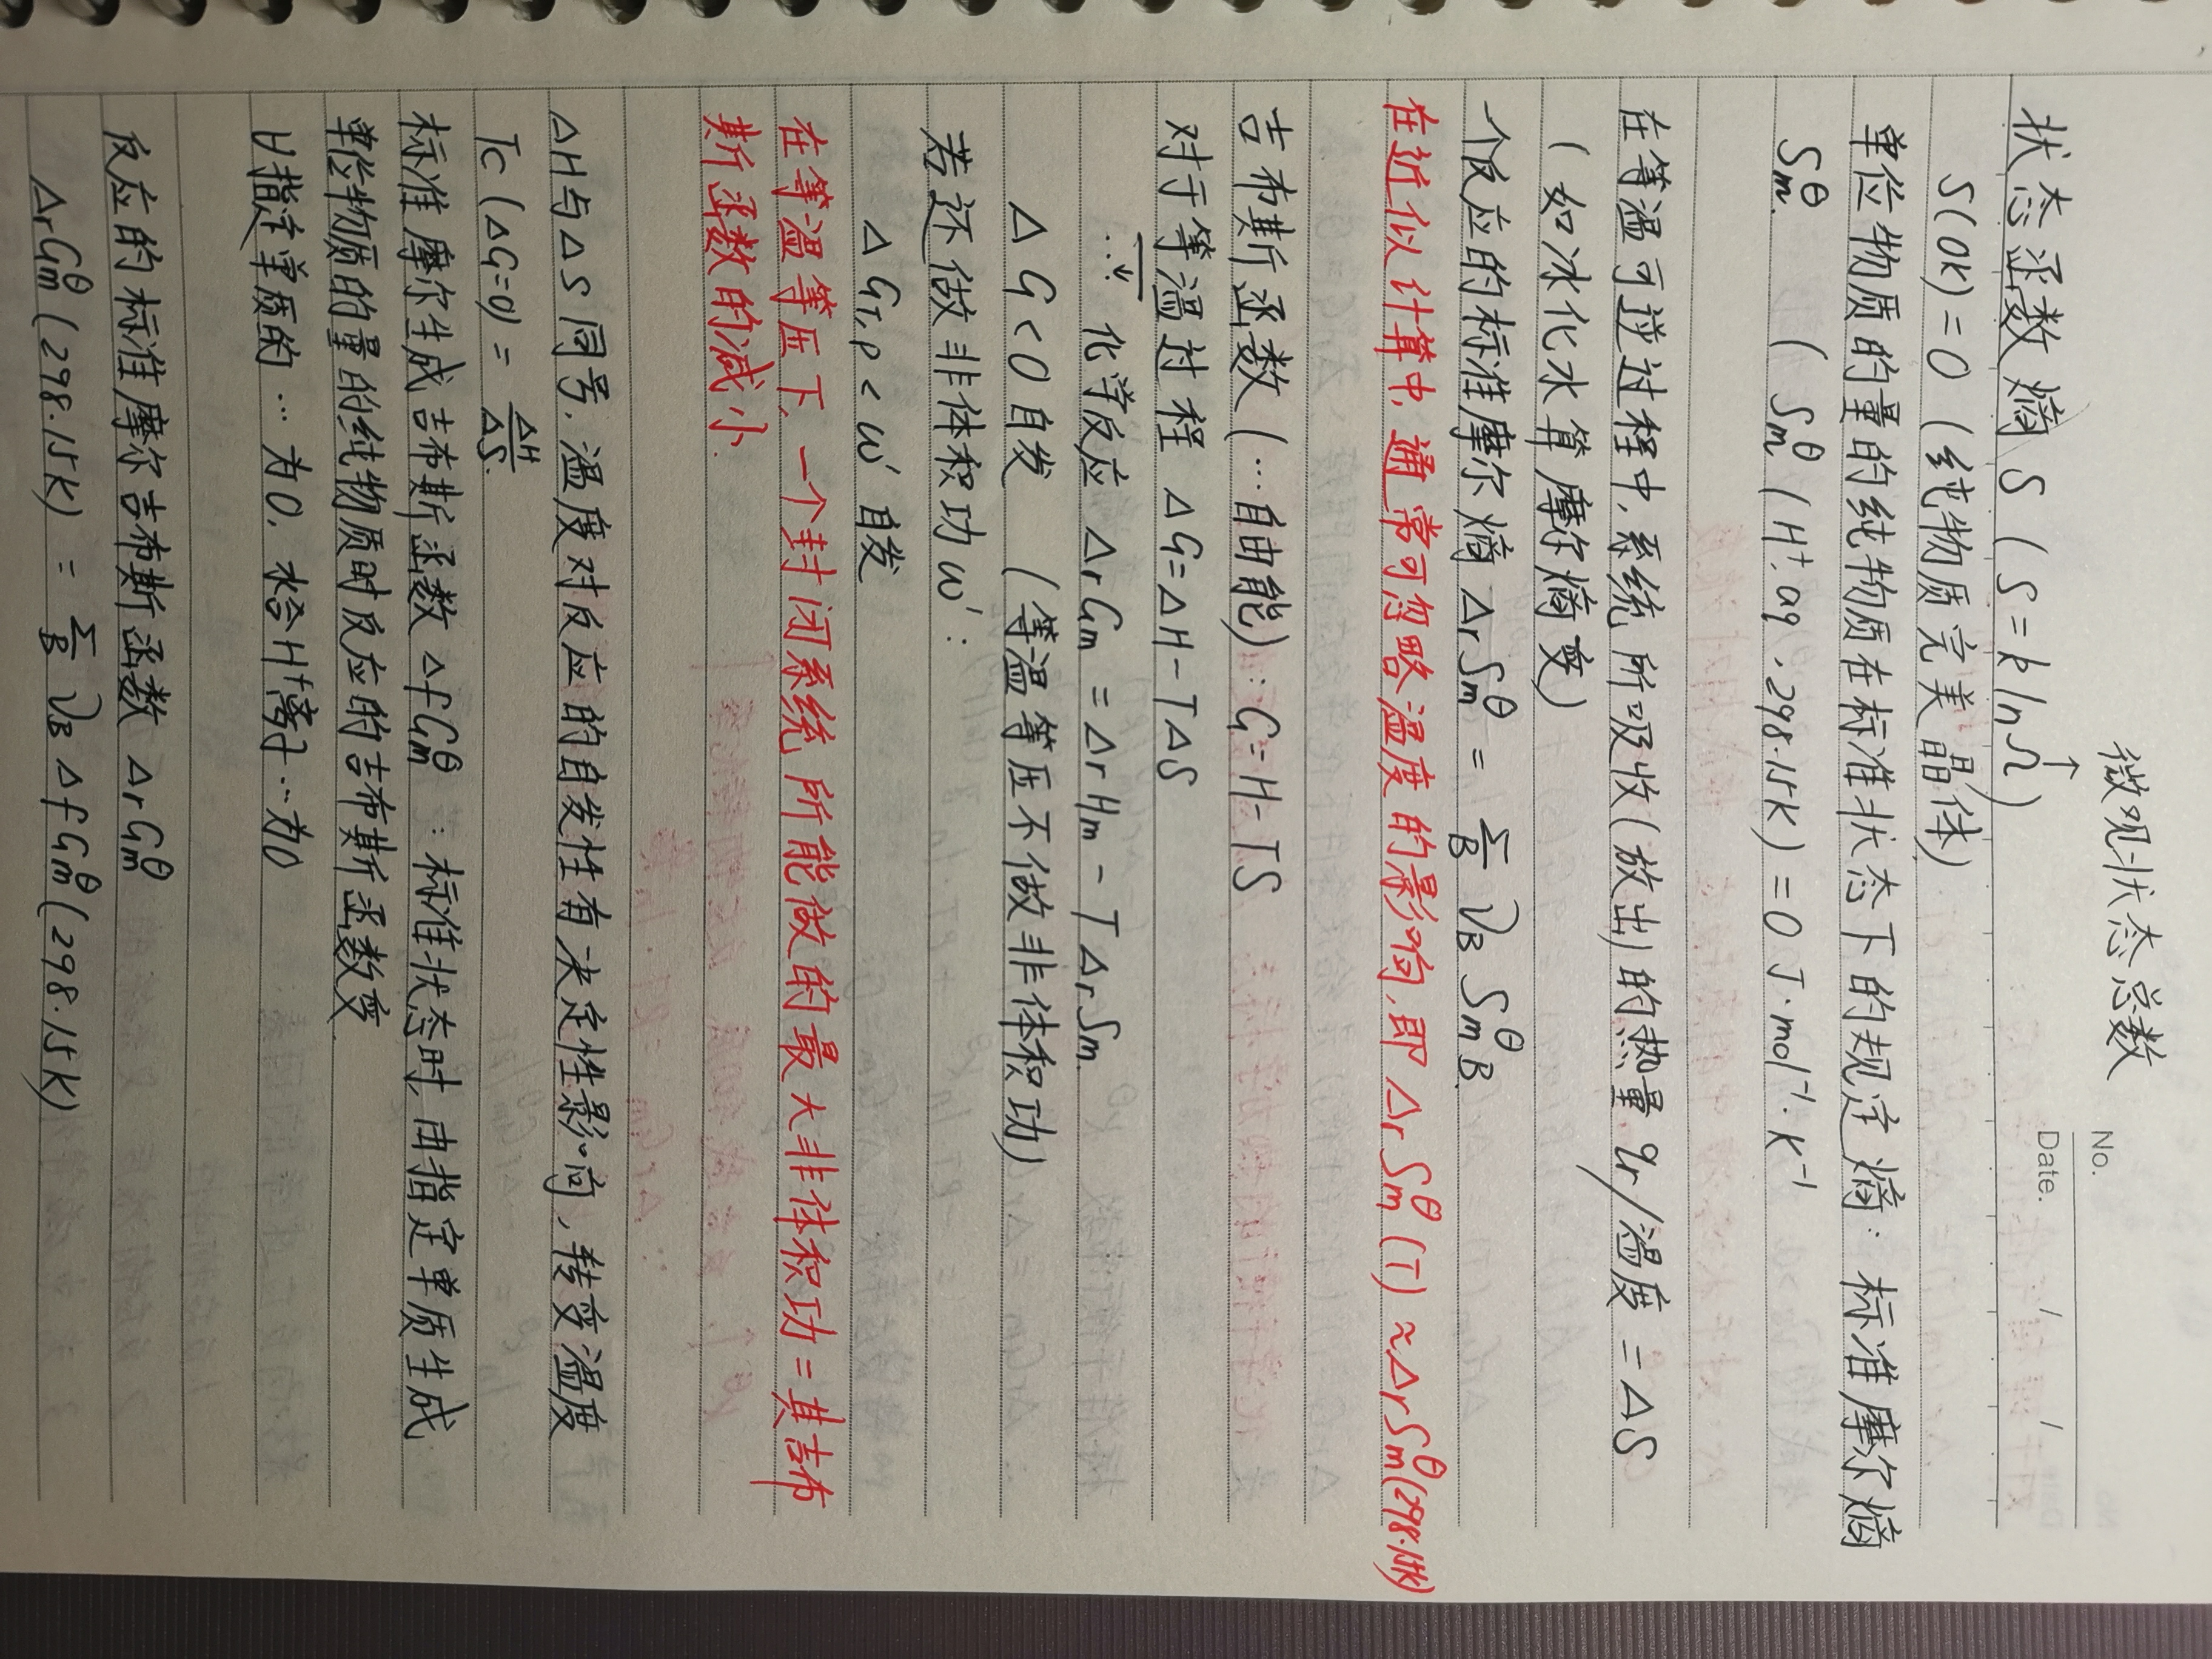 微观状态总数
No.
↑
Date. / /
状态函数 熵 S ( S = k ln Ω )
S(0K) = 0 (纯物质完美晶体)
单位物质的量的纯物质在标准状态下的规定熵: 标准摩尔熵
Sₘ^θ. ( Sₘ^θ (H⁺, aq, 298.15K) = 0 J·mol⁻¹·K⁻¹
在等温可逆过程中,系统所吸收(放出)的热量 qr/温度 = ΔS
(如冰化水算摩尔熵变)
一个反应的标准摩尔熵 ΔrSₘ^θ = Σ_B ν_B Sₘ^θ B.
在近似计算中,通常可忽略温度的影响,即 ΔrSₘ^θ (T) ≈ ΔrSₘ^θ (298.15K)
吉布斯函数 (…自由能) : G = H - TS
对于等温过程 ΔG = ΔH - TΔS
↓
… 化学反应 ΔrGm = ΔrHm - TΔrSm.
ΔG < 0 自发 (等温等压不做非体积功)
若还做非体积功 w' :
ΔG_T,P < w' 自发
在等温等压下,一个封闭系统所能做的最大非体积功 = 其吉布
斯函数的减小.
ΔH与ΔS同号,温度对反应的自发性有决定性影响,转变温度
Tc (ΔG=0) = ΔH/ΔS.
标准摩尔生成吉布斯函数 ΔfGₘ^θ : 标准状态时,由指定单质生成
单位物质的量的纯物质时反应的吉布斯函数变.
∀指定单质的 … 为0, 水合H⁺离子…为0
反应的标准摩尔吉布斯函数 ΔrGₘ^θ
ΔrGₘ^θ (298.15K) = Σ_B ν_B ΔfGₘ^θ (298.15K)